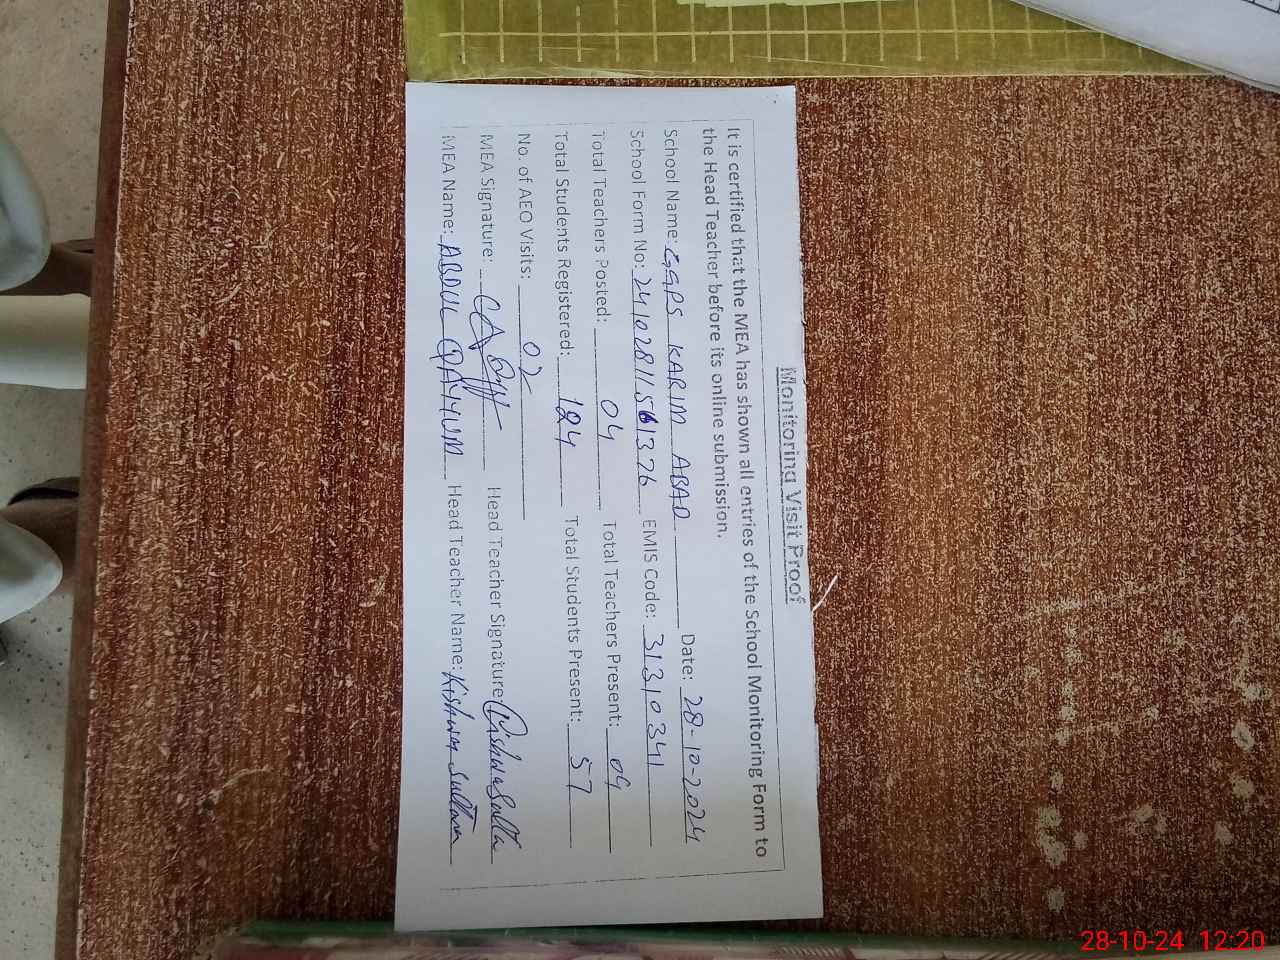 Monitoring Visit Proof
It is certified that the MEA has shown all entries of the School Monitoring Form to
the Head Teacher before its online submission.
School Name: GGPS KARIM ABAD Date: 28-10-2024
School Form No: 241028115 1326 EMIS Code: 31310341
Total Teachers Posted: 04 Total Teachers Present: 04
Total Students Registered: 124 Total Students Present: 57
No. of AEO Visits: 02
MEA Signature: Head Teacher Signature
MEA Name: ABDUL QAYYUM Head Teacher Name: Kishwar Sultana
28-10-24 12:20